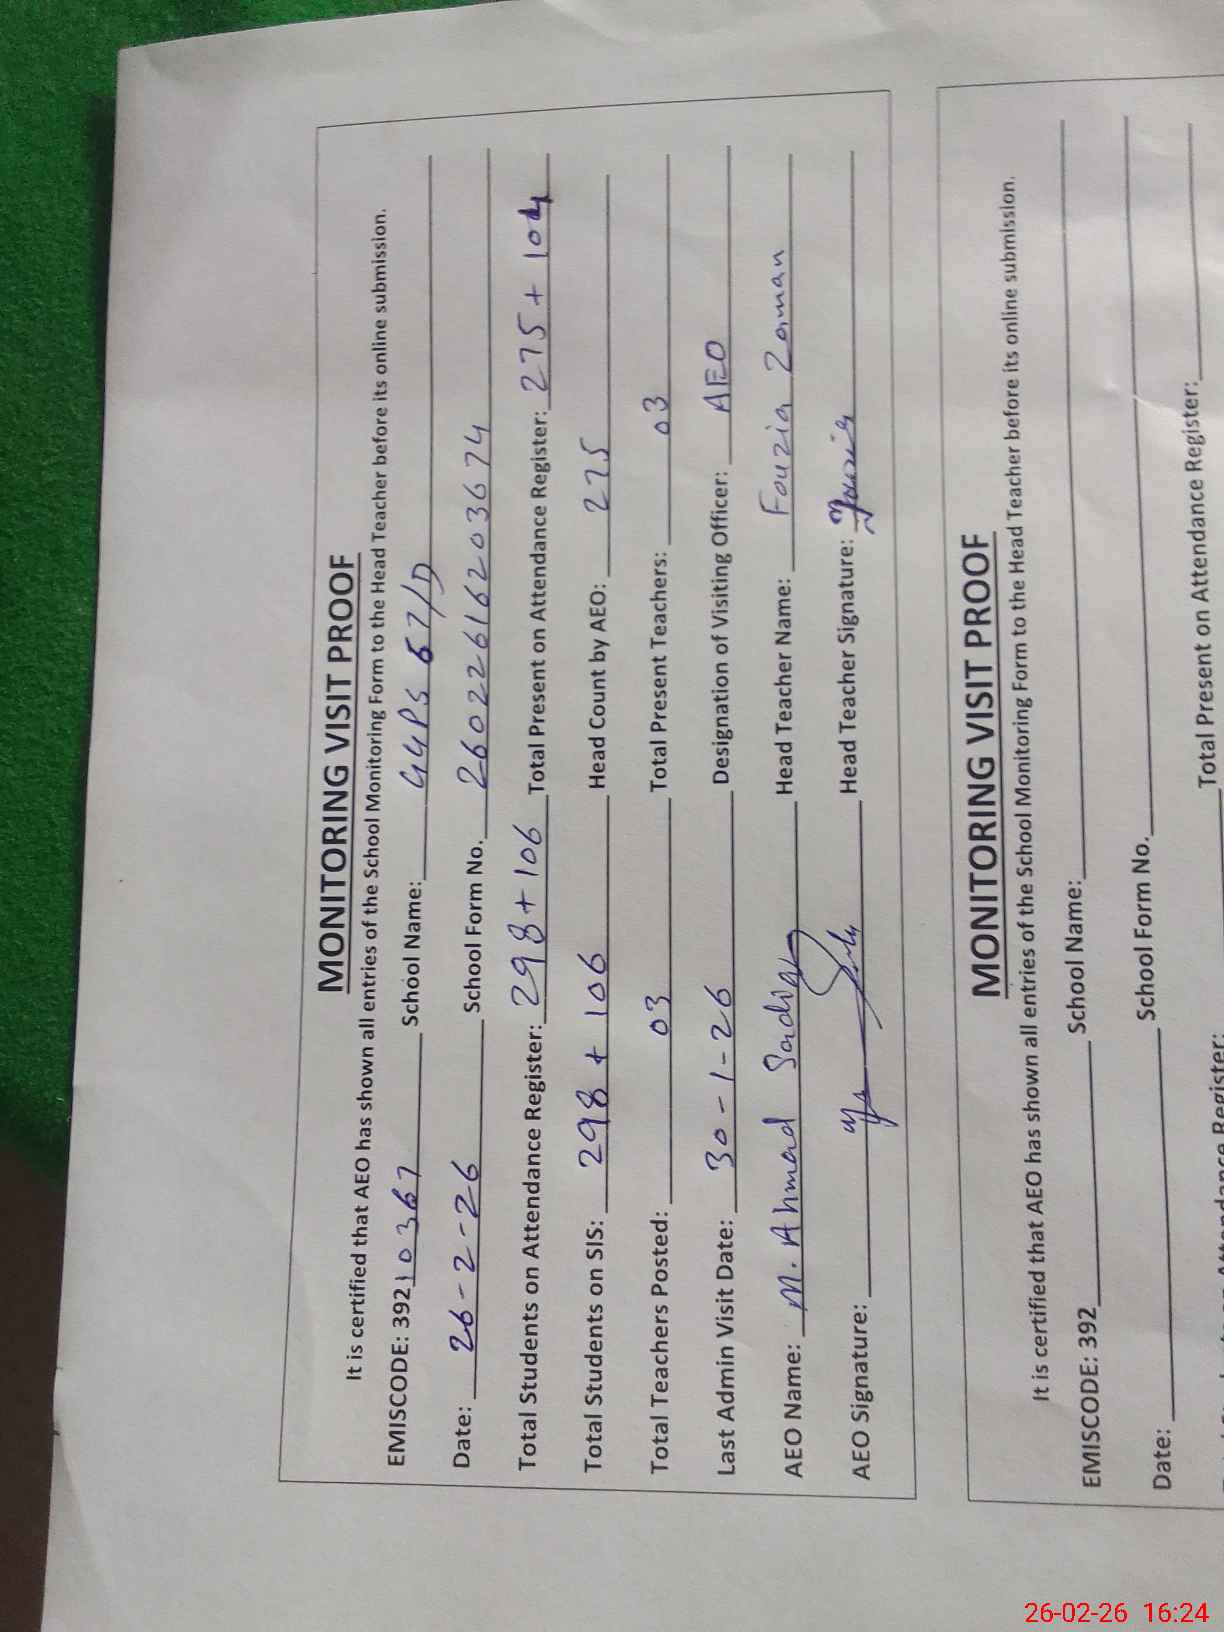 MONITORING VISIT PROOF
It is certified that AEO has shown all entries of the School Monitoring Form to the Head Teacher before its online submission.
EMISCODE: 39210367 School Name: GGPS 67/D
Date: 26-2-26 School Form No. 260226162036 74
Total Students on Attendance Register: 298+106 Total Present on Attendance Register: 275+104
Total Students on SIS: 298+106 Head Count by AEO: 275
Total Teachers Posted: 03 Total Present Teachers: 03
Last Admin Visit Date: 30-1-26 Designation of Visiting Officer: AEO
AEO Name: M. Ahmad Sadiq Head Teacher Name: Fouzia Zaman
AEO Signature: Head Teacher Signature: Fouzia
MONITORING VISIT PROOF
It is certified that AEO has shown all entries of the School Monitoring Form to the Head Teacher before its online submission.
EMISCODE: 392 School Name:
Date: School Form No.
Total Present on Attendance Register:
26-02-26 16:24